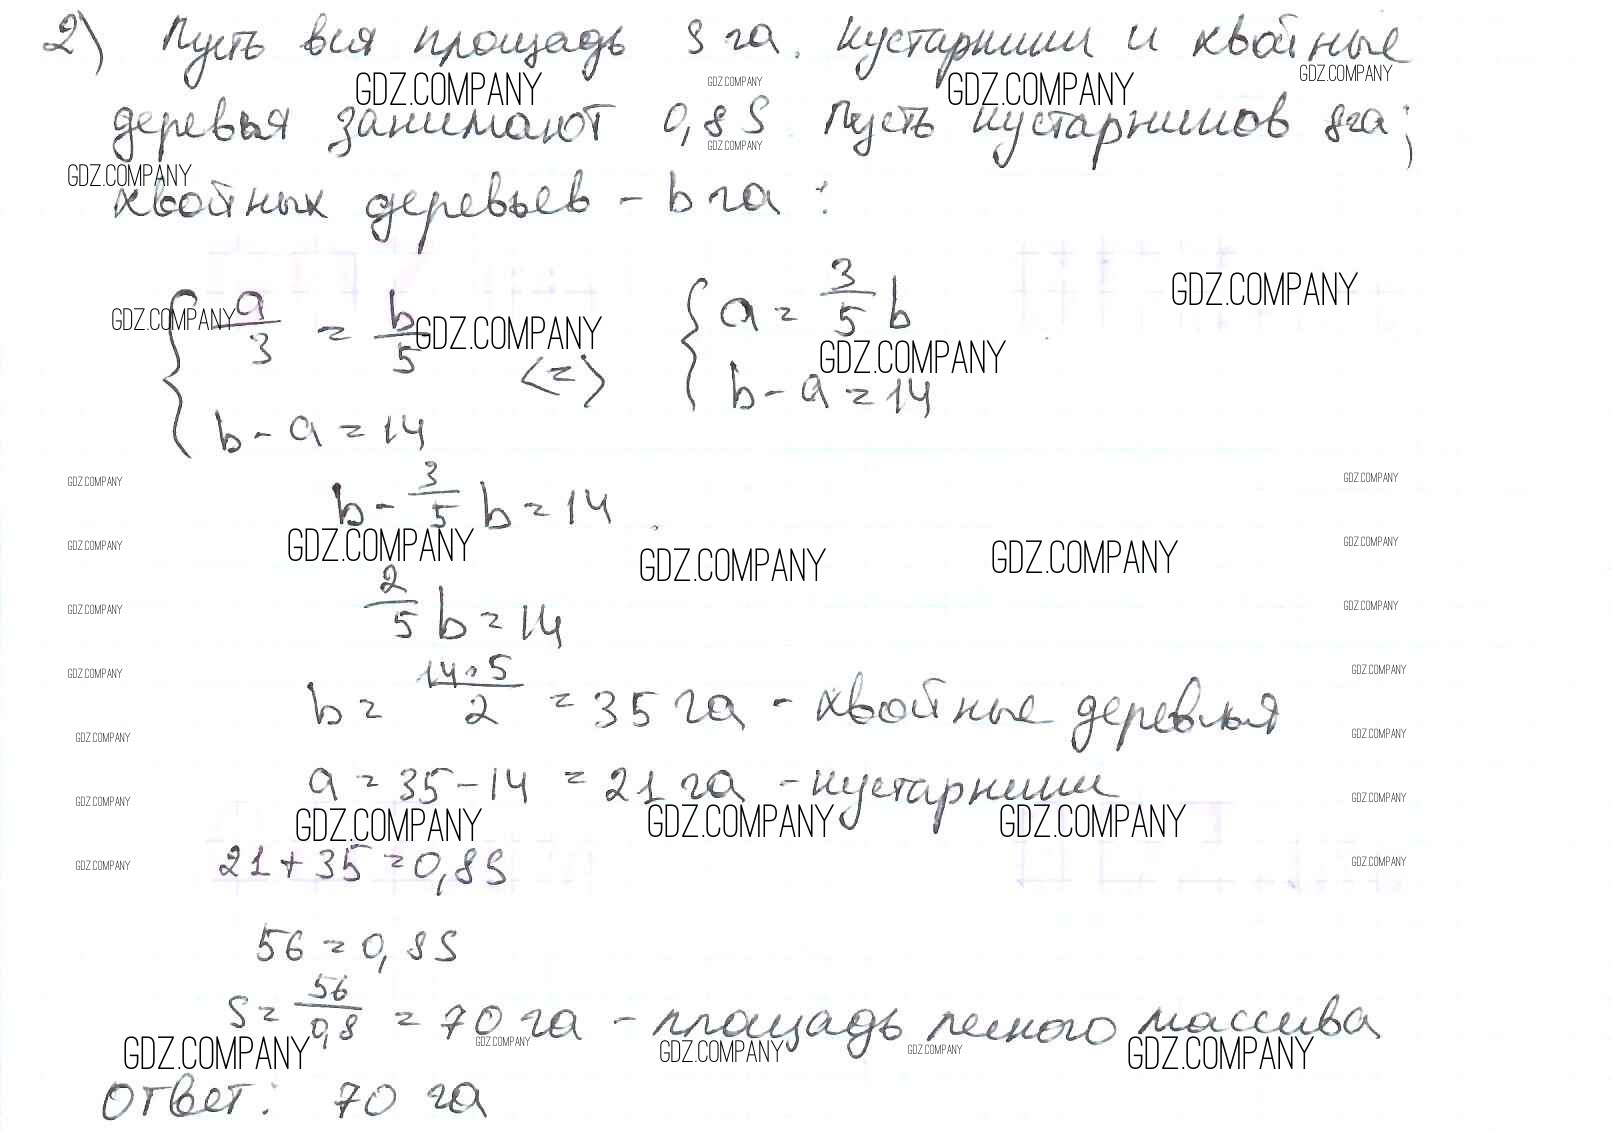 2) Пусть вся площадь S га. Кустарники и хвойные
GDZ.COMPANY GDZ.COMPANY GDZ.COMPANY GDZ.COMPANY
деревья занимают 0,8S. Пусть кустарников a га;
GDZ.COMPANY GDZ.COMPANY
хвойных деревьев - b га:
GDZ.COMPANY
{ a/3 = b/5 <=> { a = 3/5 b
GDZ.COMPANY GDZ.COMPANY GDZ.COMPANY
b - a = 14 b - a = 14
GDZ.COMPANY GDZ.COMPANY
b - 3/5 b = 14
GDZ.COMPANY GDZ.COMPANY GDZ.COMPANY GDZ.COMPANY GDZ.COMPANY
2/5 b = 14
GDZ.COMPANY GDZ.COMPANY
b = 14·5/2 = 35 га - хвойные деревья
GDZ.COMPANY GDZ.COMPANY
GDZ.COMPANY GDZ.COMPANY
a = 35 - 14 = 21 га - кустарники
GDZ.COMPANY GDZ.COMPANY
GDZ.COMPANY GDZ.COMPANY GDZ.COMPANY
21 + 35 = 0,8S
GDZ.COMPANY GDZ.COMPANY
56 = 0,8S
S = 56/0,8 = 70 га - площадь лесного массива
GDZ.COMPANY GDZ.COMPANY GDZ.COMPANY GDZ.COMPANY GDZ.COMPANY
Ответ: 70 га